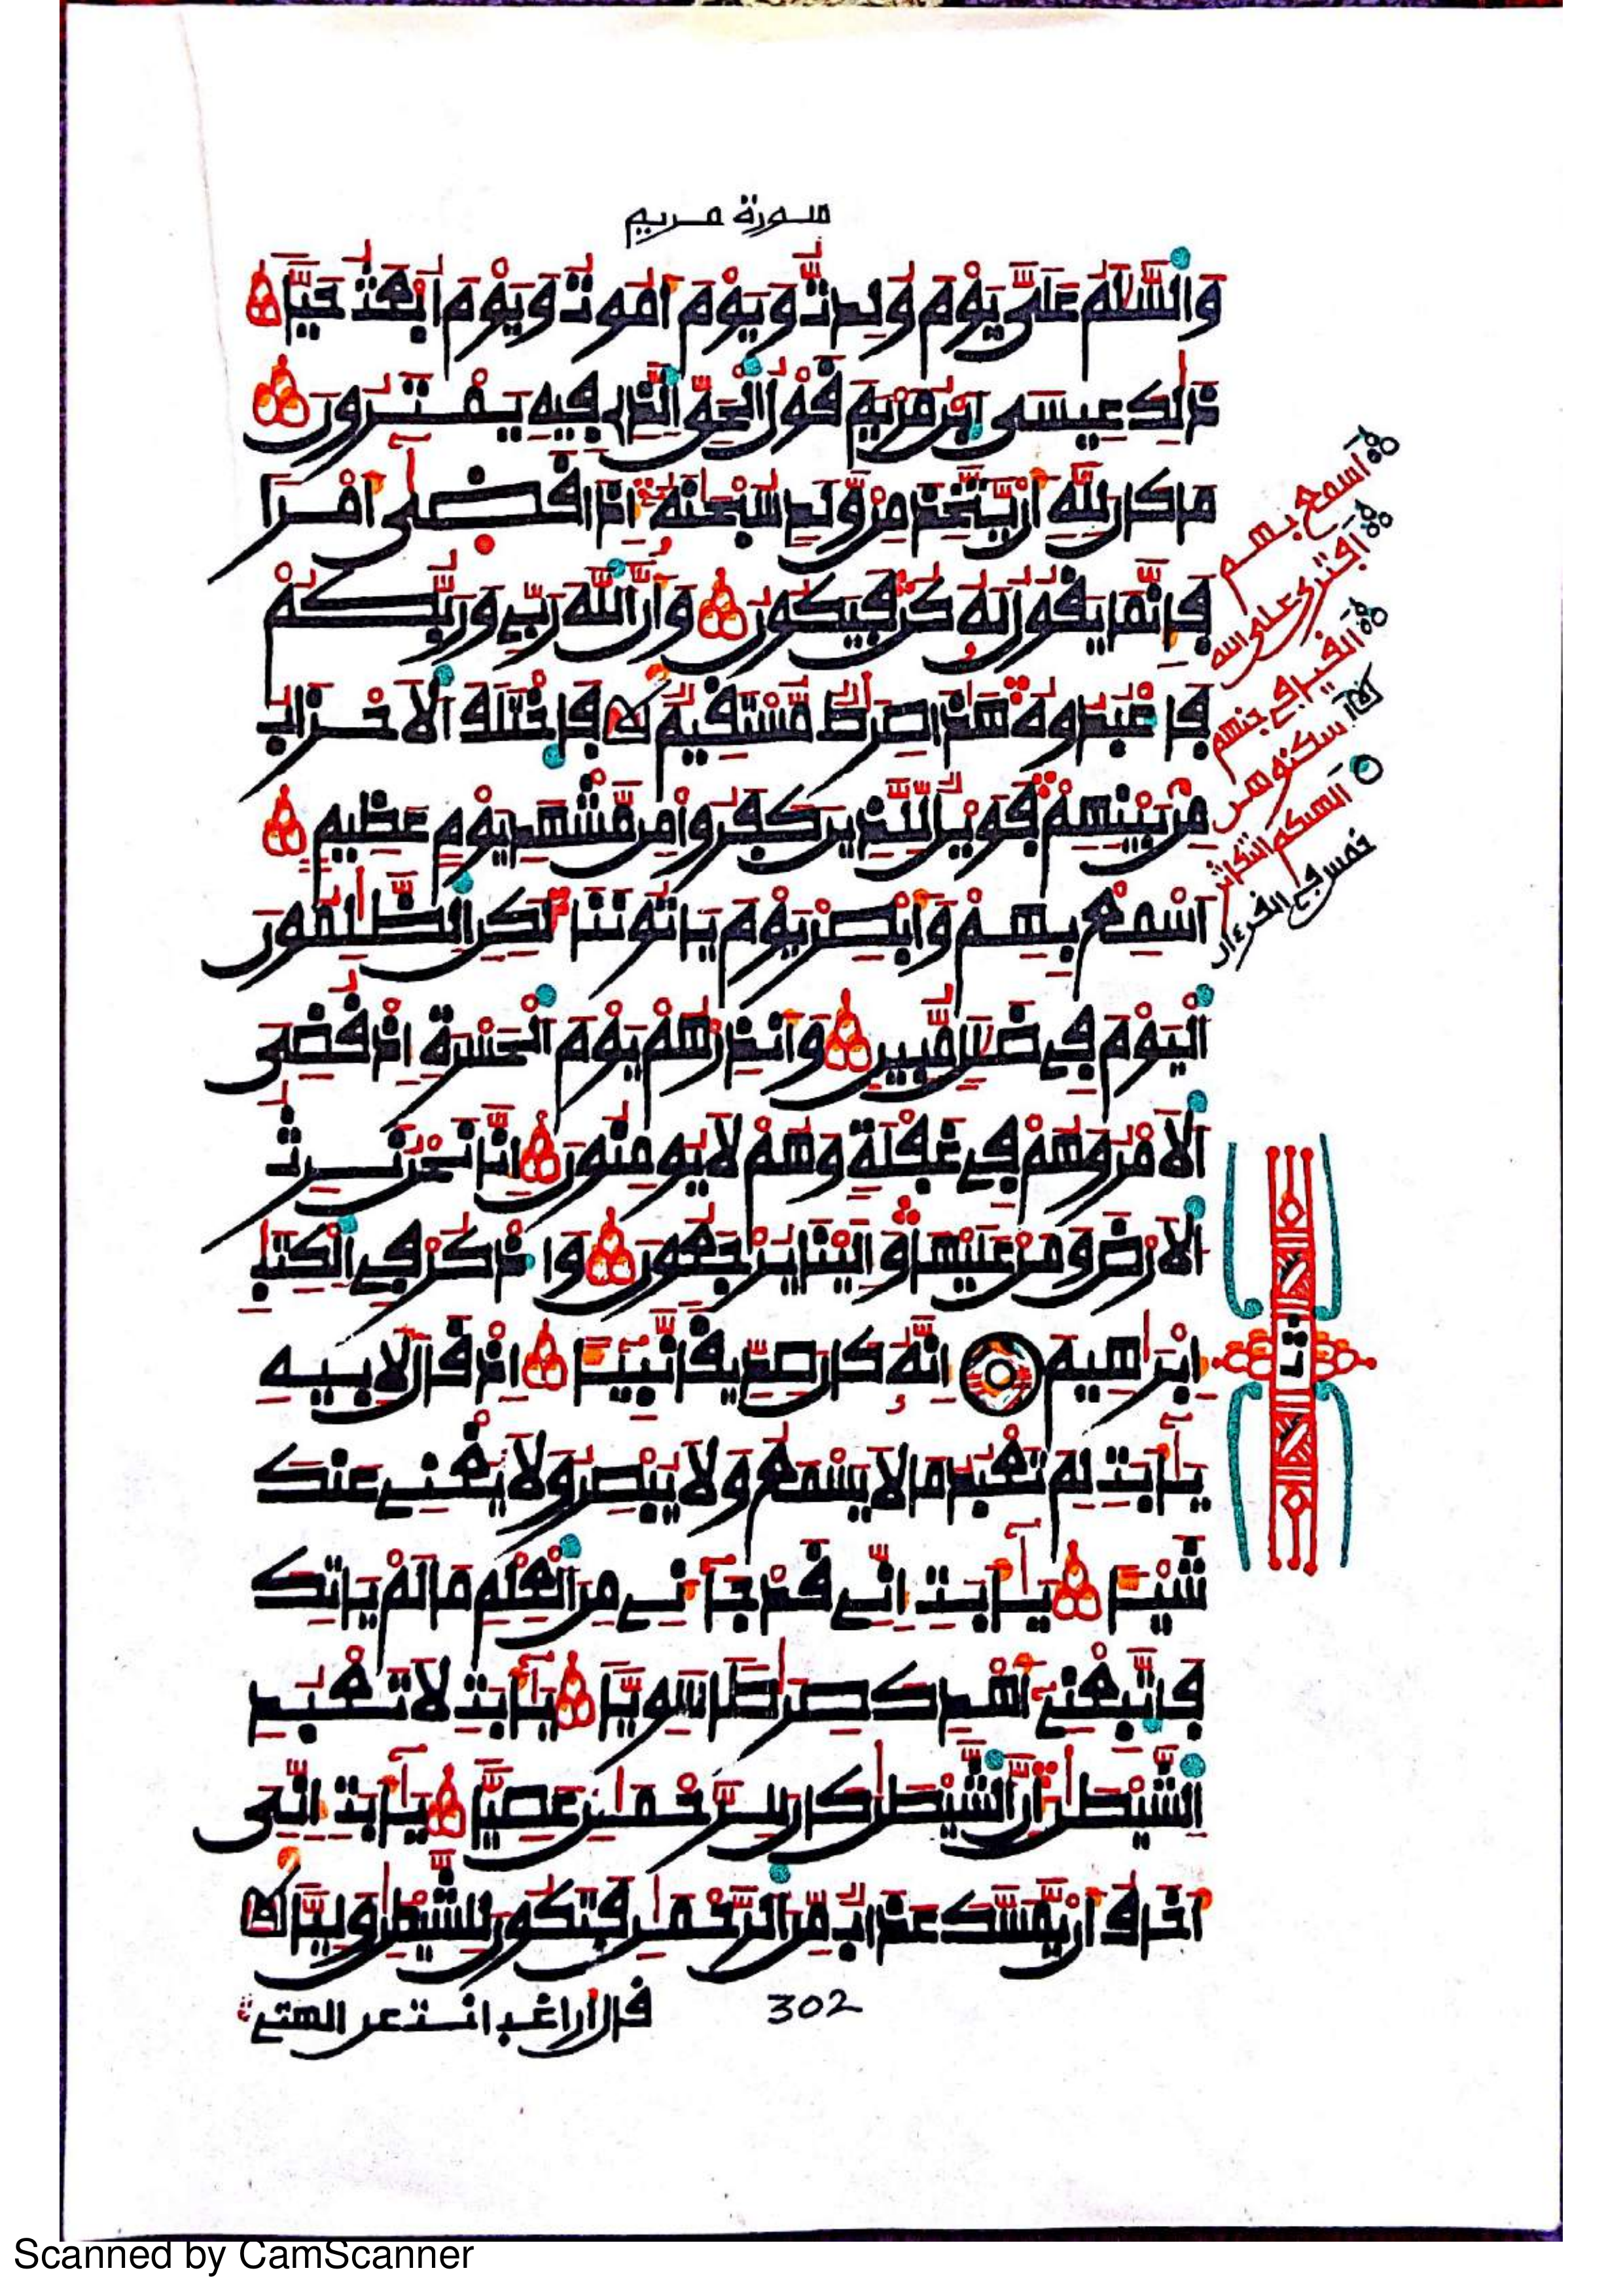 سورة مريم
وَالسَّلَٰمُ عَلَىَّ يَوْمَ وُلِدتُّ وَيَوْمَ أَمُوتُ وَيَوْمَ أُبْعَثُ حَيّٗا
ذَٰلِكَ عِيسَى اَبْنُ مَرْيَمَ قَوْلُ اُلْحَقِّ اِلذِے فِيهِ يَمْتَرُونَ
مَا كَانَ لِلهِ أَنْ يَّتَّخِذَ مِنْ وَّلَدٖ سُبْحَٰنَهُۥٓ إِذَا قَضَىٰٓ أَمْراٗ
فَإِنَّمَا يَقُولُ لَهُۥ كُنْ فَيَكُونُ وَأَنَّ اَللَّهَ رَبِّے وَرَبُّكُمْ
فَاعْبُدُوهُ هَٰذَا صِرَٰطٞ مُّسْتَقِيمٞ فَاخْتَلَفَ اَلَاحْزَابُ
مِنْ بَيْنِهِمْ فَوَيْلٞ لِّلذِينَ كَفَرُواْ مِن مَّشْهَدِ يَوْمٍ عَظِيمٍ
اَسْمِعْ بِهِمْ وَأَبْصِرْ يَوْمَ يَاتُونَنَا لَٰكِنِ اِلظَّٰلِمُونَ
اَلْيَوْمَ فِے ضَلَٰلٖ مُّبِينٖ وَأَنذِرْهُمْ يَوْمَ اَلْحَسْرَةِ إِذْ قُضِيَ
اَلَامْرُ وَهُمْ فِے غَفْلَةٖ وَهُمْ لَا يُومِنُونَ إِنَّا نَحْنُ نَرِثُ
اُلَارْضَ وَمَنْ عَلَيْهَا وَإِلَيْنَا يُرْجَعُونَ وَاذْكُرْ فِے اِلْكِتَٰبِ
إِبْرَٰهِيمَ إِنَّهُۥ كَانَ صِدِّيقاٗ نَّبِيٓـٔاً إِذْ قَالَ لِأَبِيهِ
يَٰٓأَبَتِ لِمَ تَعْبُدُ مَا لَا يَسْمَعُ وَلَا يُبْصِرُ وَلَا يُغْنِے عَنكَ
شَيْـٔاٗ يَٰٓأَبَتِ إِنِّے قَدْ جَآءَنِے مِنَ اَلْعِلْمِ مَا لَمْ يَاتِكَ
فَاتَّبِعْنِےٓ أَهْدِكَ صِرَٰطاٗ سَوِيّٗا يَٰٓأَبَتِ لَا تَعْبُدِ
اِلشَّيْطَٰنَ إِنَّ اَلشَّيْطَٰنَ كَانَ لِلرَّحْمَٰنِ عَصِيّٗا يَٰٓأَبَتِ إِنِّيَ
أَخَافُ أَنْ يَّمَسَّكَ عَذَابٞ مِّنَ اَلرَّحْمَٰنِ فَتَكُونَ لِلشَّيْطَٰنِ وَلِيّٗا
قال اراغب انت عن الهتے
302
اسمع بهم
افترى على الله
القيا في جهنم
الهيكم التكاثر
خمس في القرءان
Scanned by CamScanner